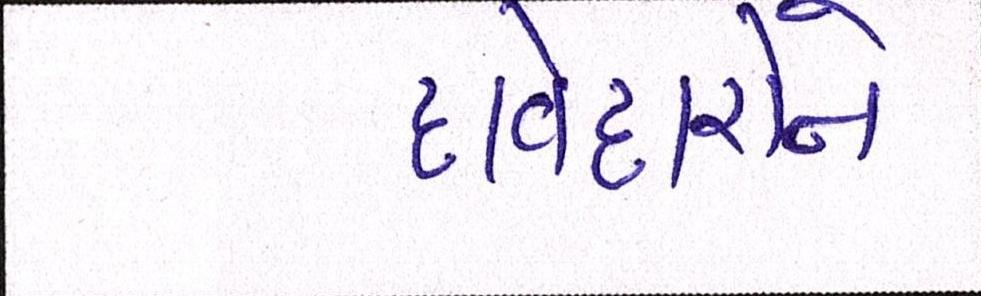 દાવેદારોને